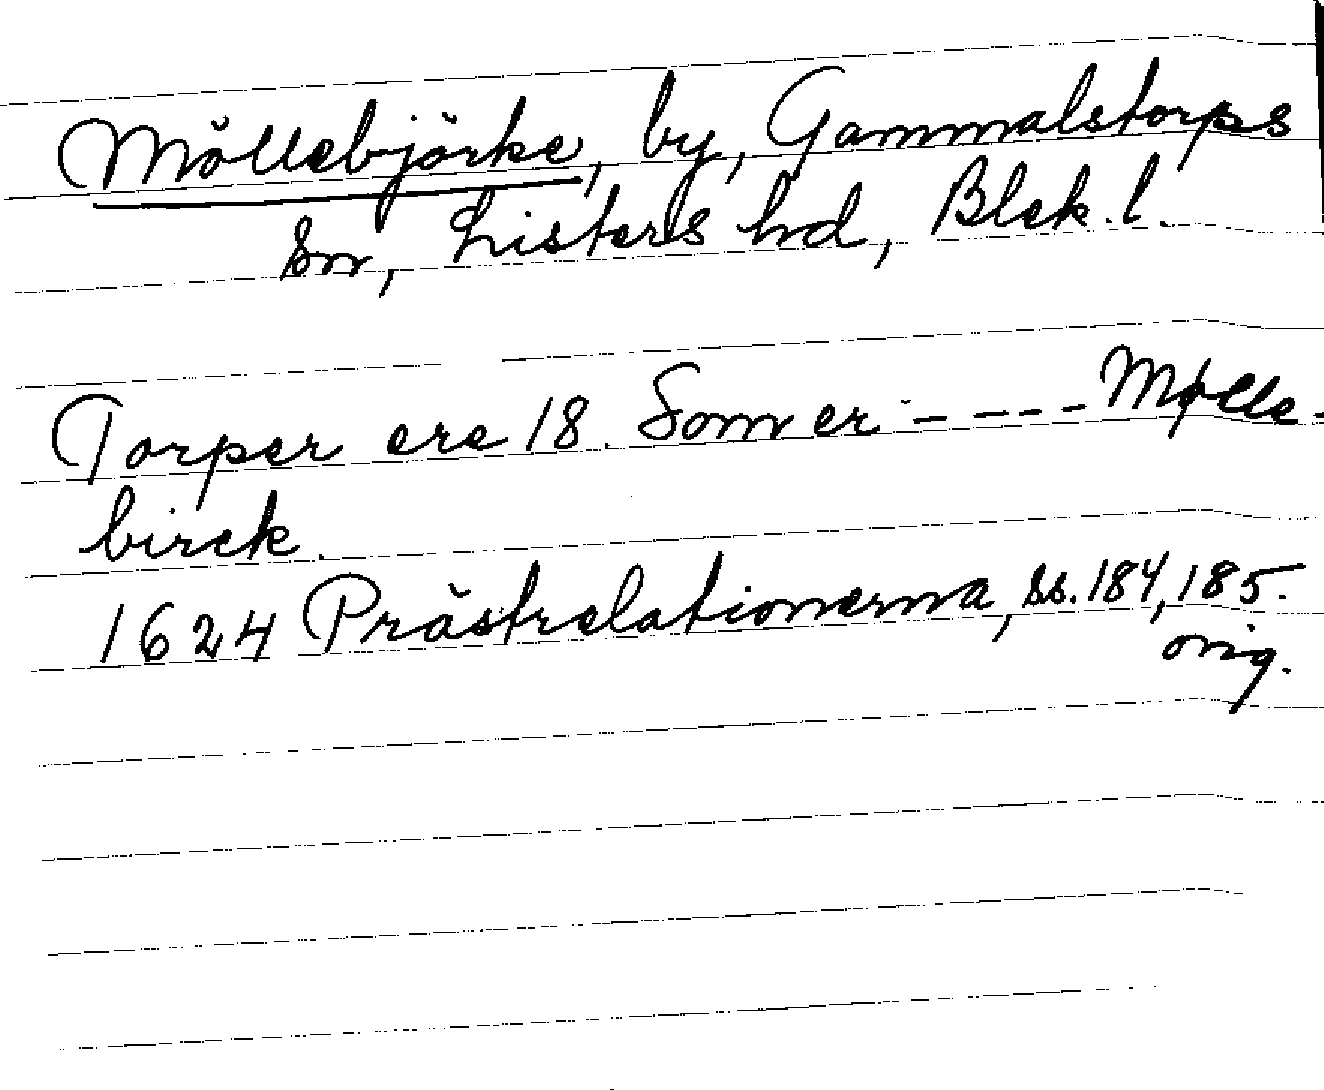 Möllebjörke, by, Gammalstorps
sn, Listers hd, Blek. l.
Torper ere 18. Som er - - - - Mølle-
birck.
1624 Prästrelationerna, ss. 184, 185.
orig.